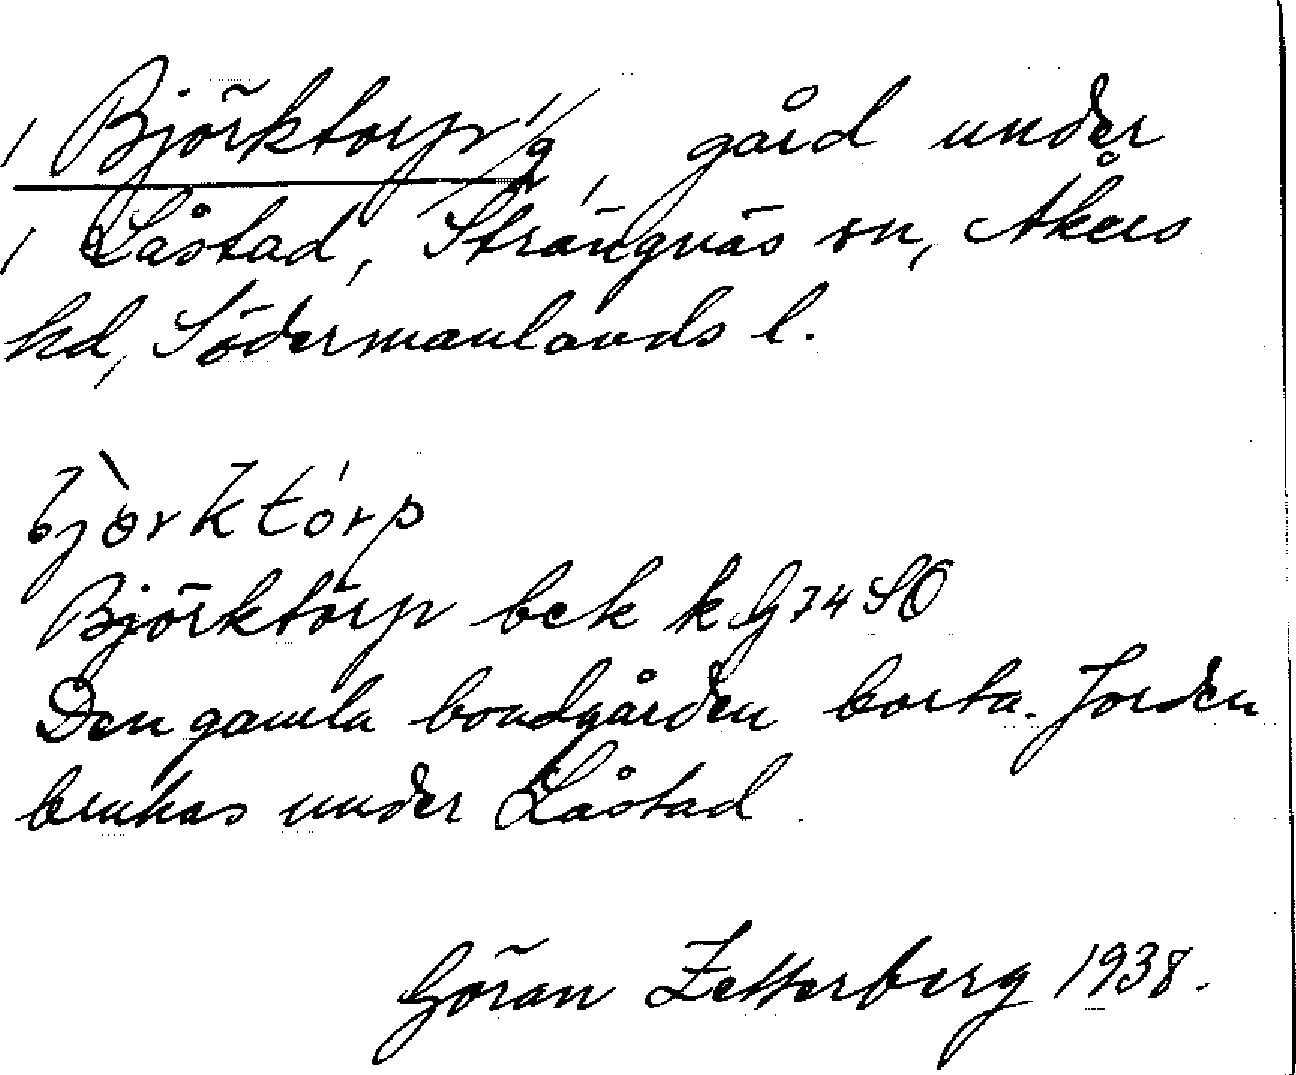 Björktorp, gård under
Låstad, Strängnäs sn, Åkers
hd, Södermanlands l.
bjòrktórp
Björktorp bek k G 74 SO
Den gamla bondgården borta. Jorden
brukas under Låstad
Göran Zetterberg 1938.